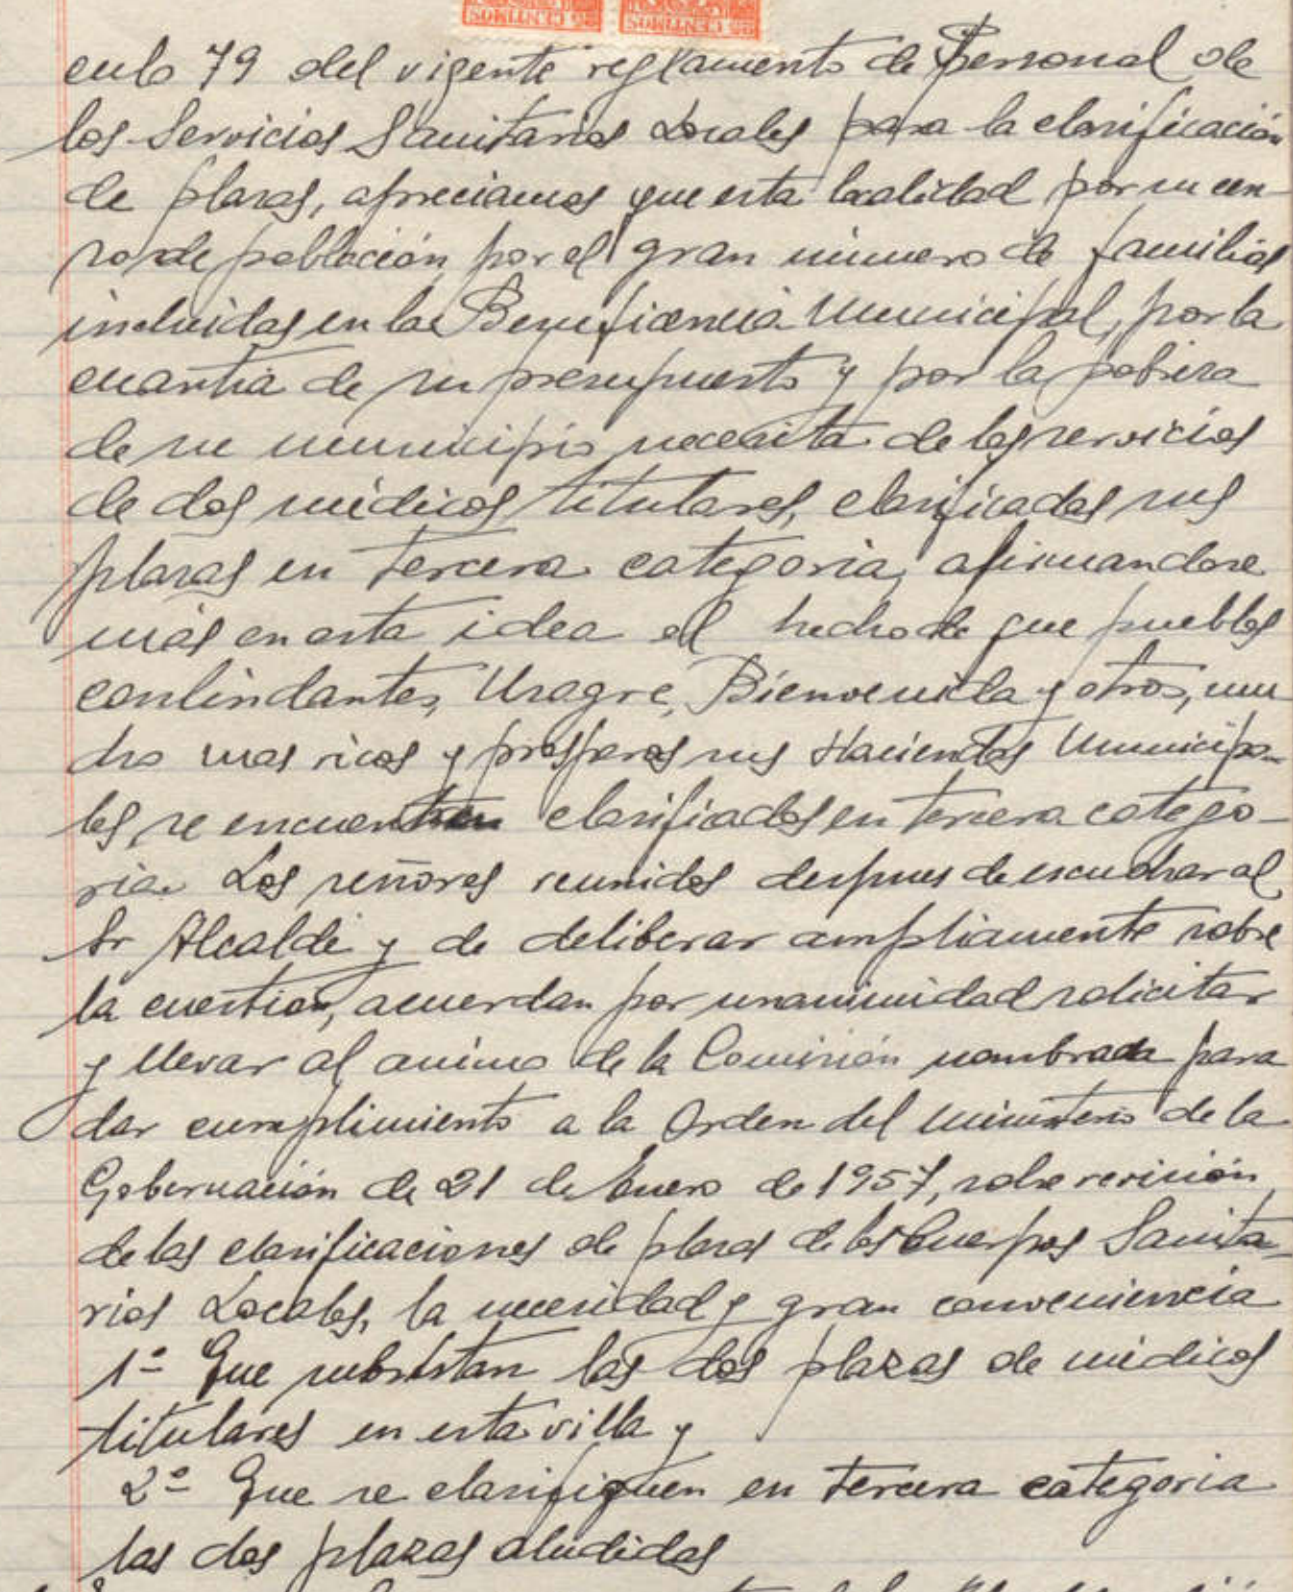 25 CENTIMOS 25 CENTIMOS
culo 79 del vigente reglamento de Personal de
los Servicios Sanitarios Locales para la clasificación
de plazas, apreciamos que esta localidad por su cen-
so de población, por el gran número de familias
incluidas en la Beneficencia Municipal, por la
cuantia de su presupuesto y por la pobreza
de su municipio necesita de los servicios
de dos médicos titulares, clasificadas sus
plazas en tercera categoria, afirmandose
más en esta idea el hecho de que pueblos
conlindantes, Usagre, Bienvenida y otros, mu
cho mas ricos y prosperos sus Haciendas Municipa-
les, se encuentren clasificados en tercera catego-
ria. Los señores reunidos despues de escuchar al
Sr Alcalde y de deliberar ampliamente sobre
la cuestion, acuerdan por unanimidad solicitar
y llevar al animo de la Comisión nombrada para
dar cumplimiento a la Orden del Ministerio de la
Gobernación de 21 de Enero de 1957, sobre revisión
de las clasificaciones de plazas de los Cuerpos Sanita-
rios Locales, la necesidad y gran conveniencia
1º Que subsistan las dos plazas de médicos
titulares en esta villa y
2º Que se clasifiquen en tercera categoria
las dos plazas aludidas